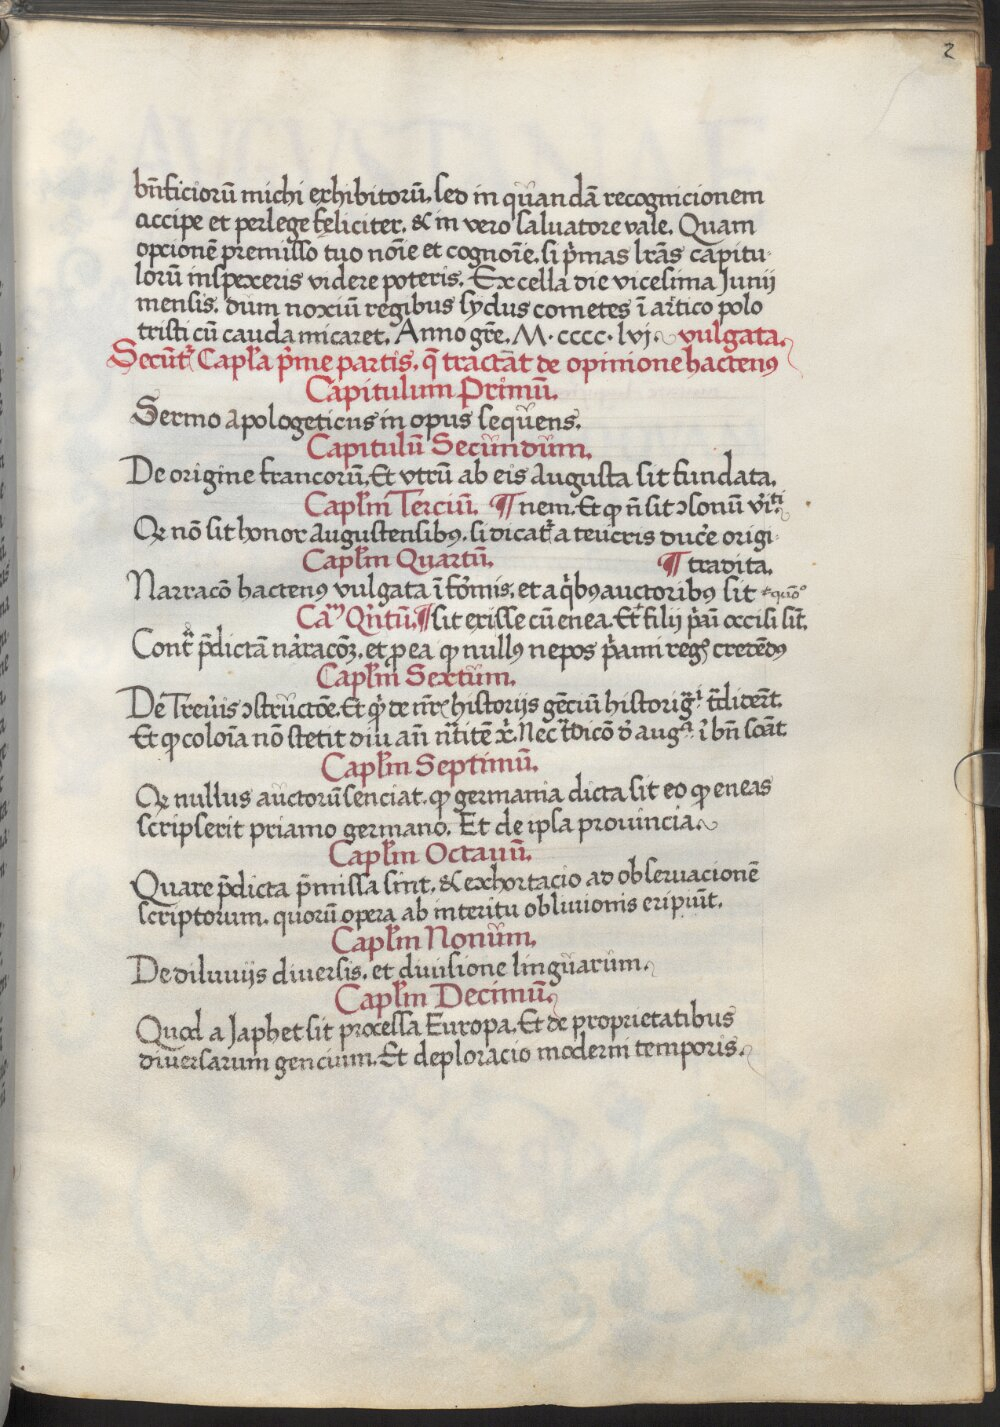 2
bn̄ficiorū michi exhibitorū, sed in quandā recognicionem
accipe et perlege feliciter, & in vero saluatore vale. Quam
opcionē premisso tuo noīe et cognoīe, si p̄mas lrās capitu-
lorū inspexeris videre poteris. Ex cella die vicesima Junij
mensis, dum noxiū regibus sydus cometes ī artico polo
tristi cū cauda micaret. Anno gr̄e. M. cccc. lvj. vulgata.
Secūt᷑ Capl̄a p̄me partis, q̄ tractāt de opinione hactenꝰ
Capitulum Primū.
Sermo apologeticus in opus sequens.
Capitulū Secundum.
De origine francorū, Et vtrū ab eis Augusta sit fundata.
Capl̄m Terciū. ¶ nem. Et qꝫ n̄ sit ↄsonū v̄iti
Qꝫ nō sit honor Augustensibꝰ, si dicat᷑ a teucris duce origi-
Capl̄m Quartū. ¶ tradita.
Narracō hactenꝰ vulgata ī formis, et a qͥbꝰ auctoribꝰ sit quō
Cam Qntū. ¶ sit exisse cū enea. Et filij pͥāi occisi sīt.
Contᷓ p̄dictā narracōꝫ, et p̱ ea qꝫ nullꝰ nepos pͥami regis credēdꝰ
Capl̄m Sextum.
De Treuis ↄstructōe, Et
Et qꝫ coloīa nō stetit diu an̄
Capl̄m Septimū.
Qꝫ nullus auctorū senciat, qꝫ germania dicta sit eo qꝫ eneas
scripserit priamo germano. Et de ipsa prouincia.
Capl̄m Octauū.
Quare p̄dicta p̄missa sint, & exhortacio ad obseruacionē
scriptorum, quorū opera ab interitu obliuionis eripiūt.
Capl̄m Nonum.
De diluuijs diuersis, et diuisione linguarum.
Capl̄m Decimū.
Quod a Japhet sit processa Europa, Et de proprietatibus
diuersarum gencium. Et deploracio moderni temporis.